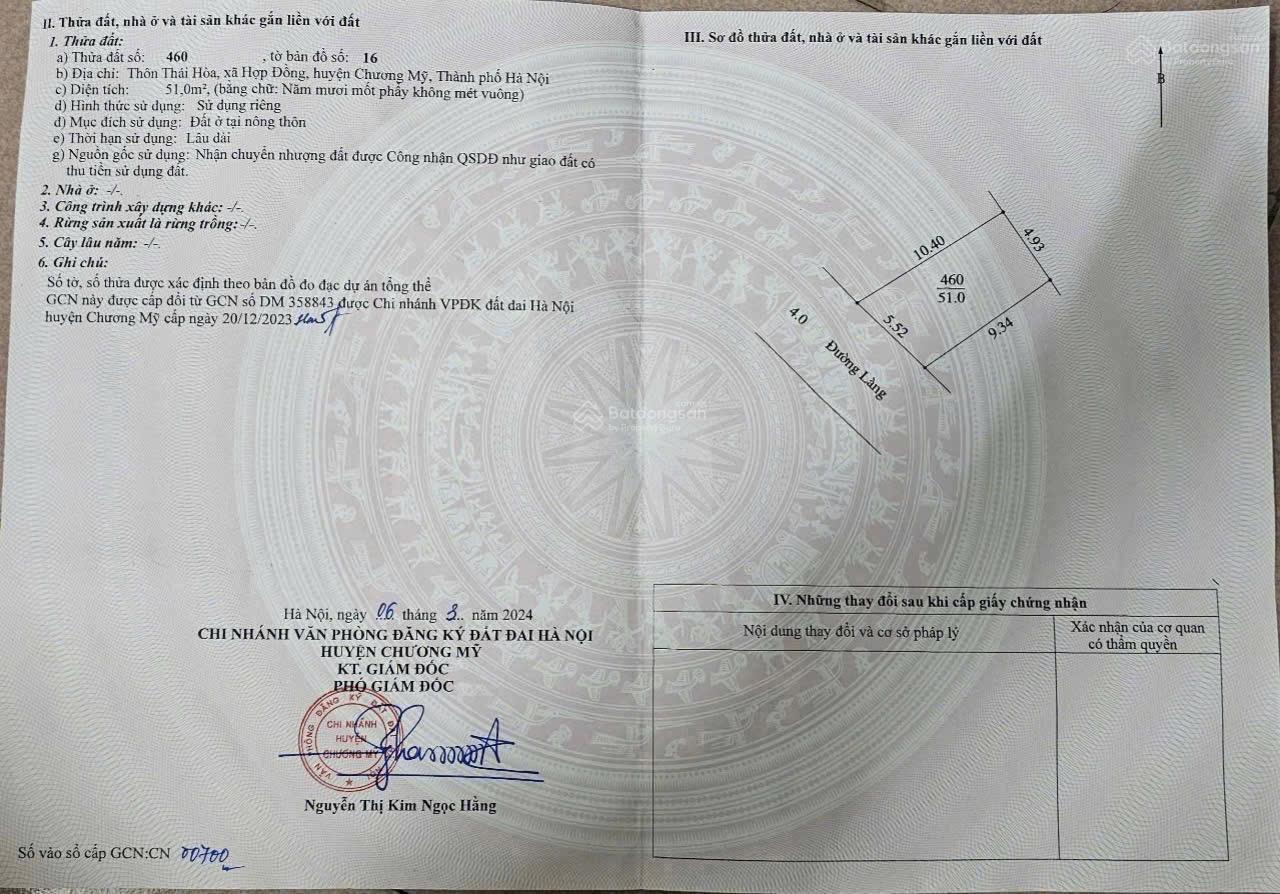 II. Thửa đất, nhà ở và tài sản khác gắn liền với đất
1. Thửa đất:
a) Thửa đất số: 460 , tờ bản đồ số: 16
b) Địa chỉ: Thôn Thái Hòa, xã Hợp Đồng, huyện Chương Mỹ, Thành phố Hà Nội
c) Diện tích: 51,0m², (bằng chữ: Năm mươi mốt phẩy không mét vuông)
d) Hình thức sử dụng: Sử dụng riêng
đ) Mục đích sử dụng: Đất ở tại nông thôn
e) Thời hạn sử dụng: Lâu dài
g) Nguồn gốc sử dụng: Nhận chuyển nhượng đất được Công nhận QSDĐ như giao đất có
thu tiền sử dụng đất.
2. Nhà ở: -/-.
3. Công trình xây dựng khác: -/-.
4. Rừng sản xuất là rừng trồng: -/-.
5. Cây lâu năm: -/-.
6. Ghi chú:
Số tờ, số thửa được xác định theo bản đồ đo đạc dự án tổng thể
GCN này được cấp đổi từ GCN số DM 358843 được Chi nhánh VPĐK đất đai Hà Nội
huyện Chương Mỹ cấp ngày 20/12/2023
Hà Nội, ngày 06 tháng 3.. năm 2024
CHI NHÁNH VĂN PHÒNG ĐĂNG KÝ ĐẤT ĐAI HÀ NỘI
HUYỆN CHƯƠNG MỸ
KT. GIÁM ĐỐC
PHÓ GIÁM ĐỐC
VĂN PHÒNG ĐĂNG KÝ ĐẤT ĐAI HÀ NỘI
CHI NHÁNH
HUYỆN
CHƯƠNG MỸ
Nguyễn Thị Kim Ngọc Hằng
Số vào sổ cấp GCN:CN 00700
III. Sơ đồ thửa đất, nhà ở và tài sản khác gắn liền với đất
B
10.40
4.93
460
51.0
5.52
9.34
4.0
Đường Làng
IV. Những thay đổi sau khi cấp giấy chứng nhận
Nội dung thay đổi và cơ sở pháp lý
Xác nhận của cơ quan
có thẩm quyền
Batdongsan
by PropertyGuru
Batdongsan
by PropertyGuru